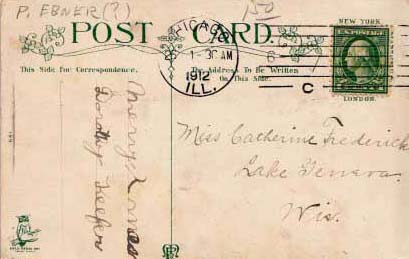 P. EBNER(?)
150
NEW YORK.
POST CARD.
CHICAGO
1-30AM
1912
ILL.
U.S. POSTAGE
C
This Side for Correspondence.
Address To Be Written
On This Side
LONDON.
Merry Xmas
Dorothy Keefer
Miss Catherine Frederick
Lake Geneva.
Wis.